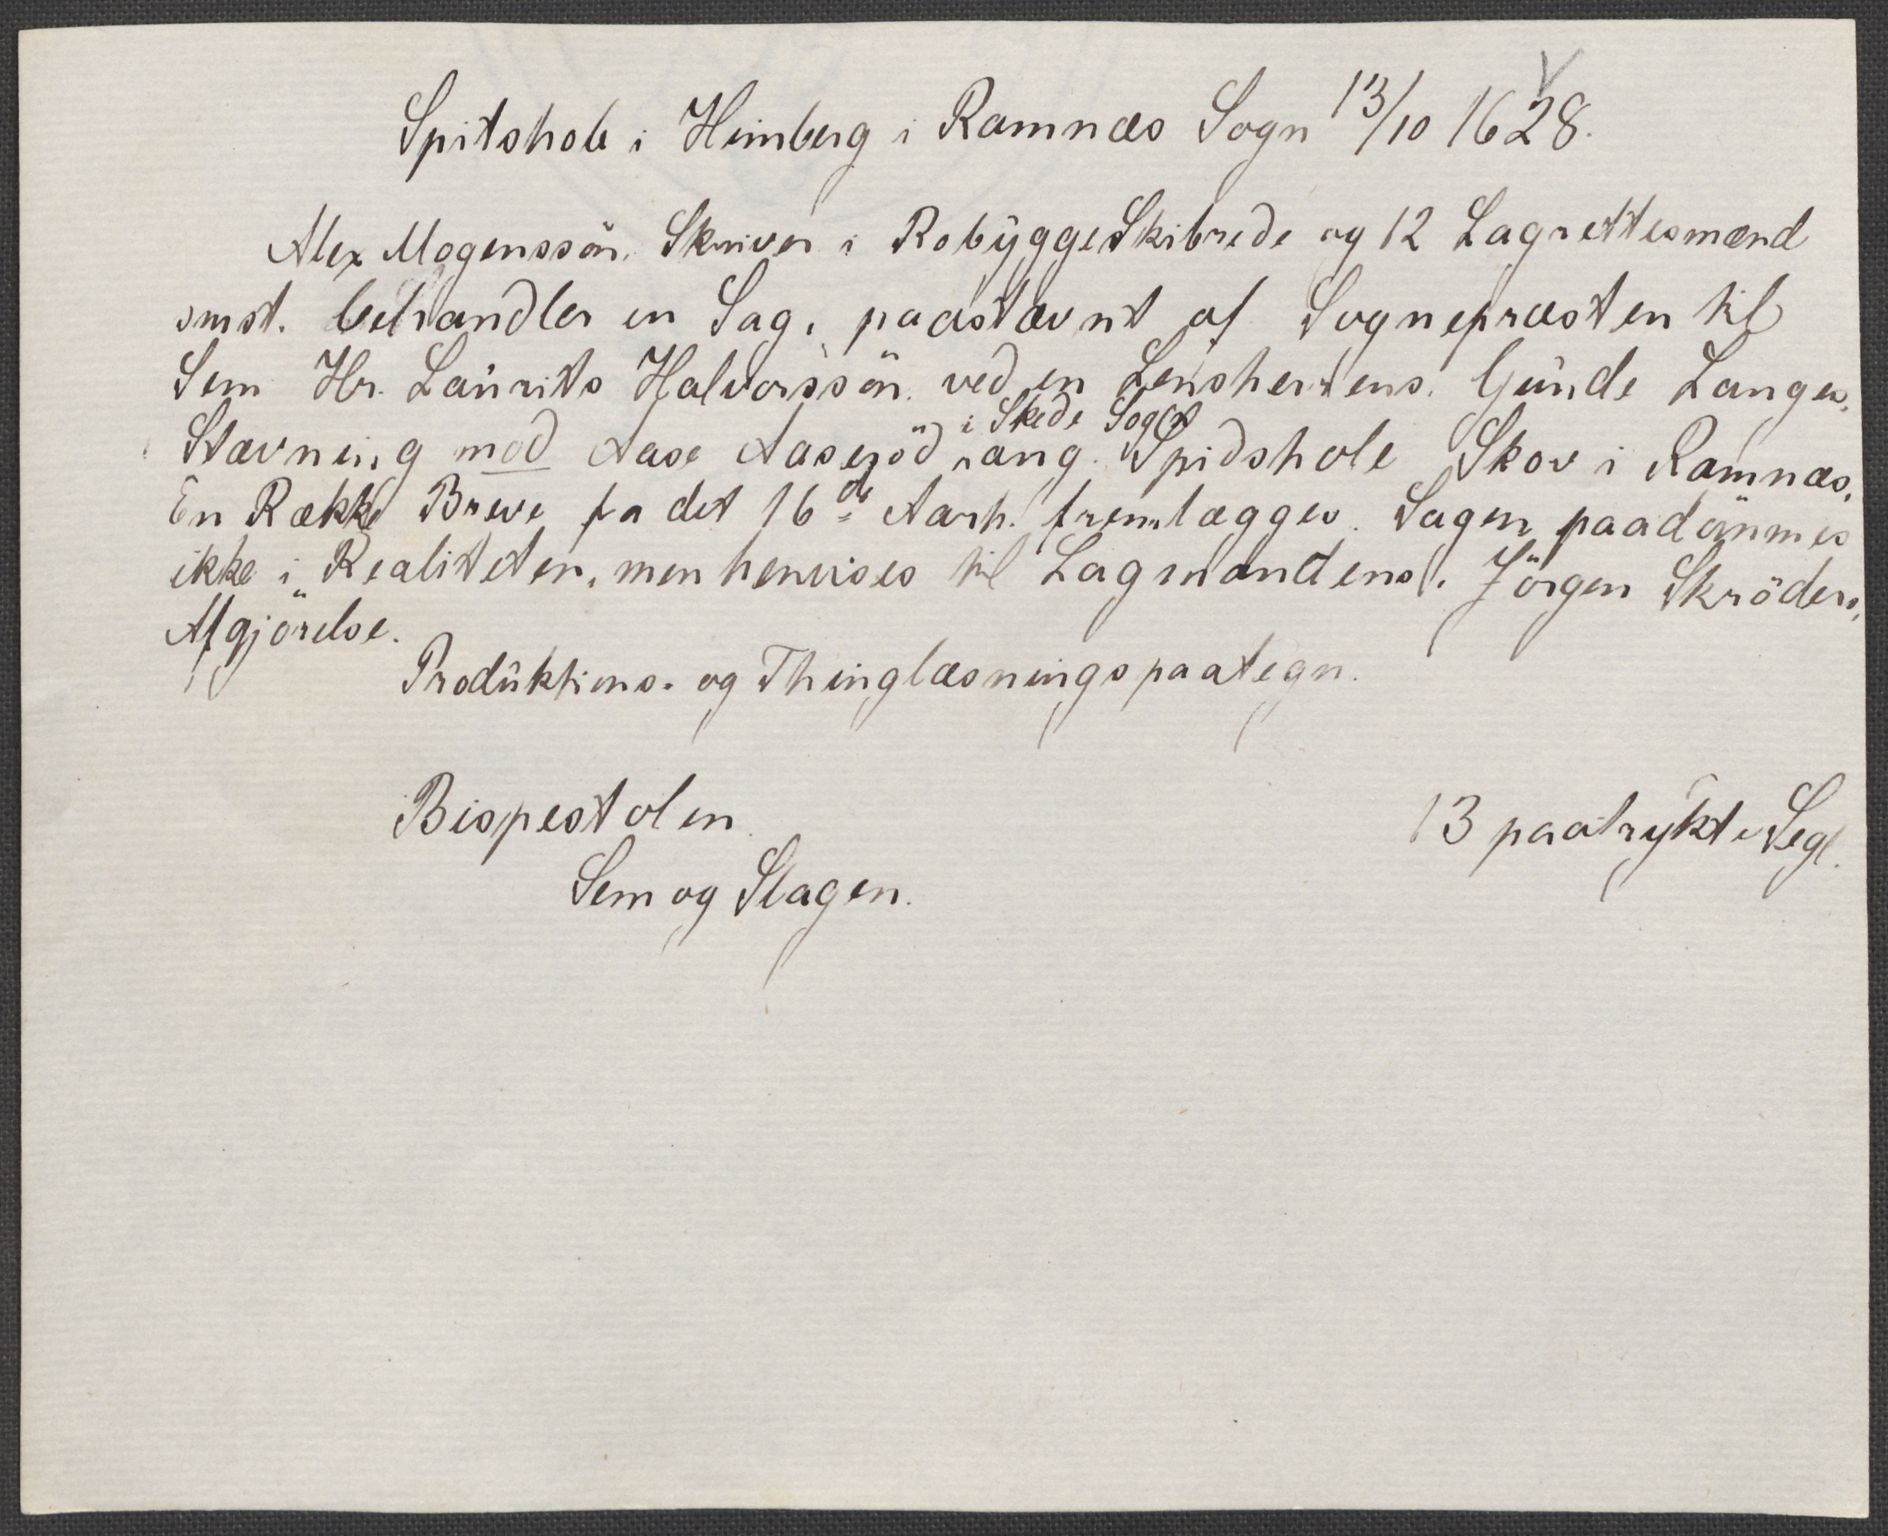 Spitshole i Heimberg i Ramnæs Sogn 13/10 1628.
Alex Mogenssön, Skriver i Robygge Skibrede og 12 Lagrettesmænd
smst. behandler en Sag, paastævnt af Sognepræsten til
Sem Hr. Laurits Halvorssön ved en Lensherrens, Gunde Langes,
i Skede Sogn
Stævning mod Aase Aasejöd ang. Spidshole Skov i Ramnæs.
En Række Breve fra det 16de Aarh. fremlægges. Sagen paadömmes
ikke i Realiteten, men henvises til Lagmandens, Jörgen Skröders,
Afgjörelse.
Produktions- og Thinglæsningspaategn.
Bispestolen
13 paatrykte Segl.
Sem og Slagen.